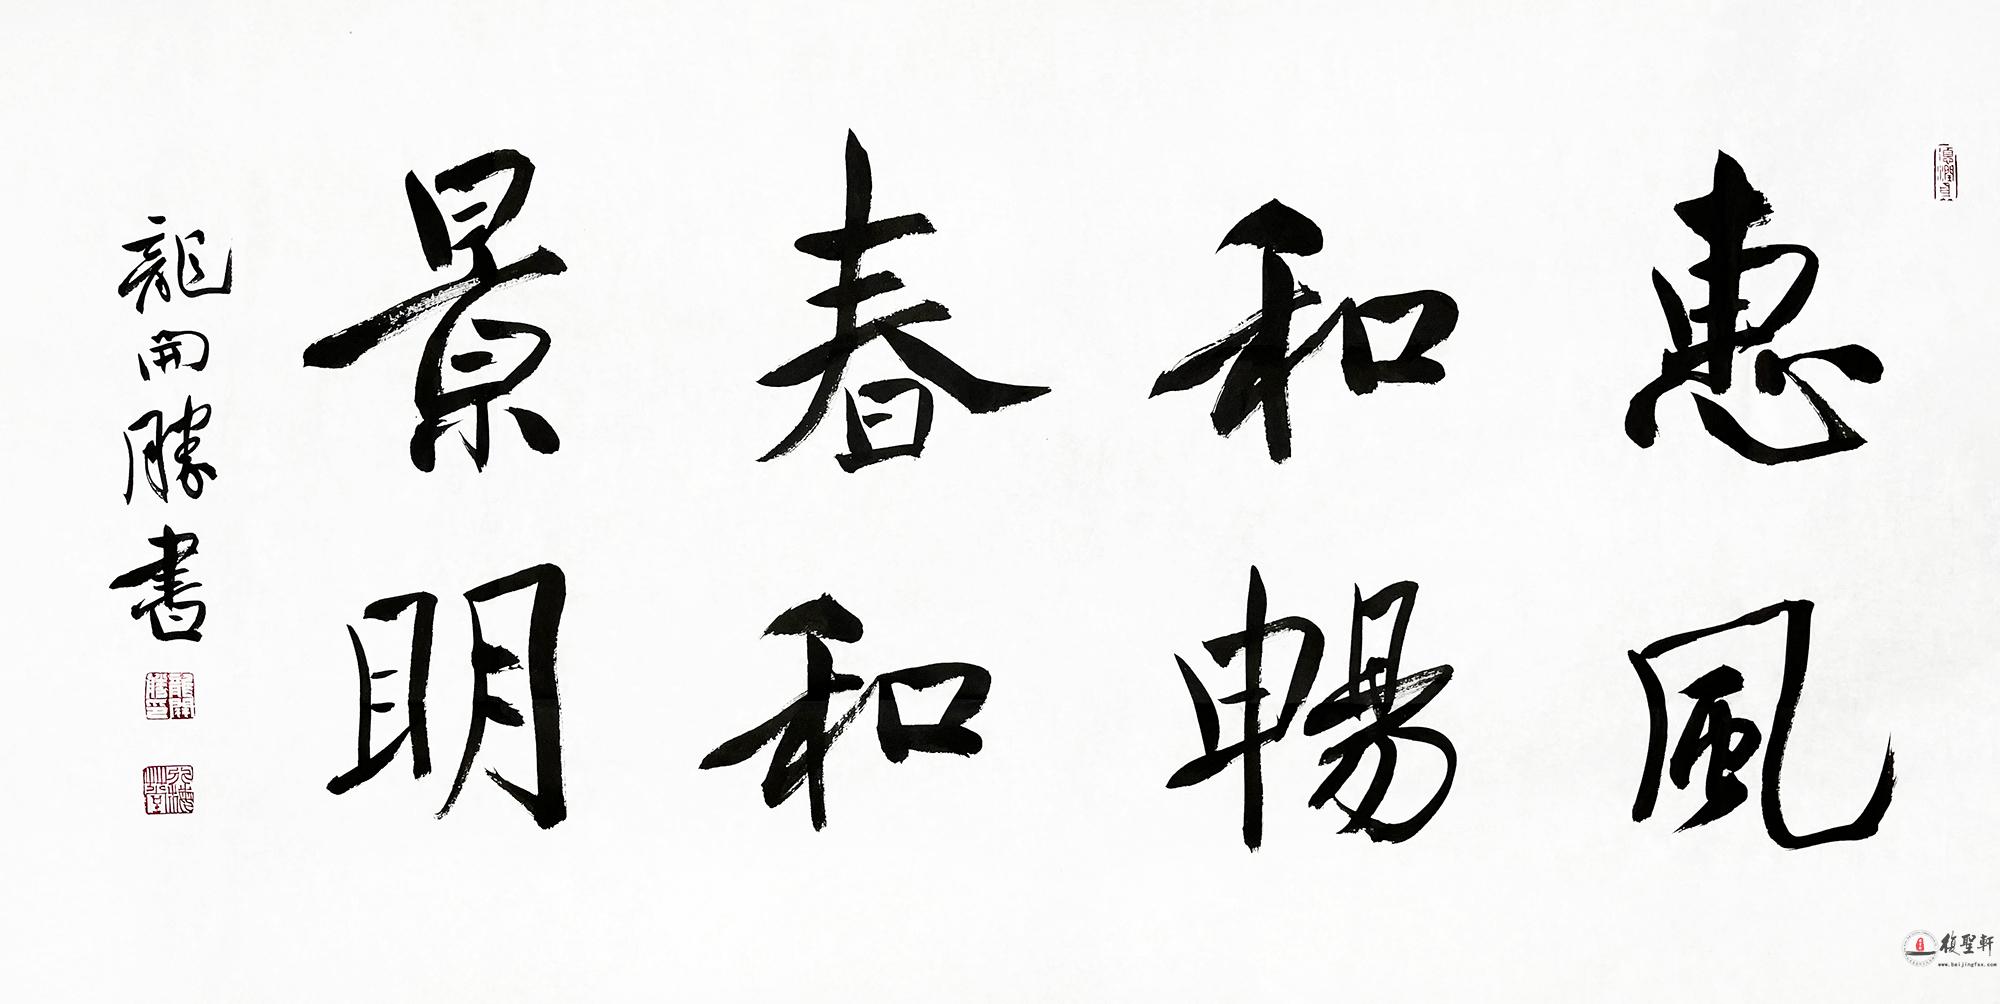 惠風
和暢
春和
景明
龍開勝書
龍開勝印
復聖軒
www.beijingfsx.com